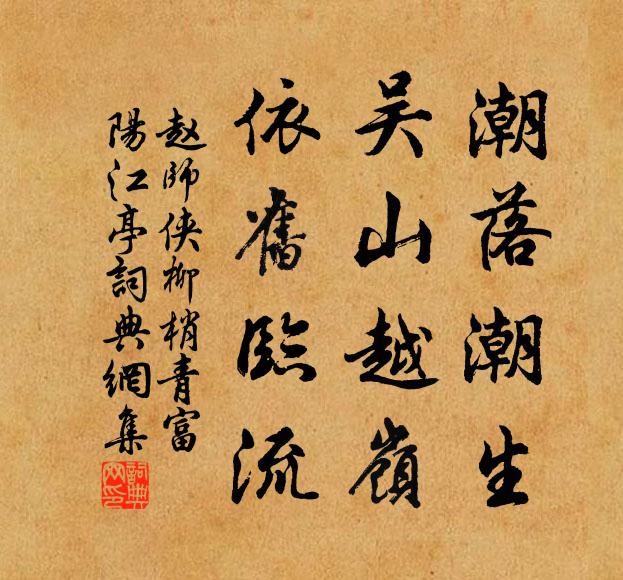 潮落潮生
吴山越嶺
依舊臨流
赵師侠柳梢青富
陽江亭詞典網集
詞典网印